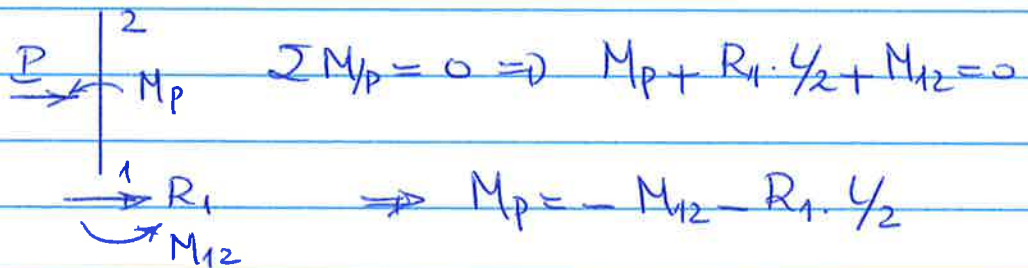 2
P
M_P
ΣM/P = 0 ⇒ M_P + R_1 · L/2 + M_12 = 0
1
R_1
M_12
⇒ M_P = - M_12 - R_1 · L/2